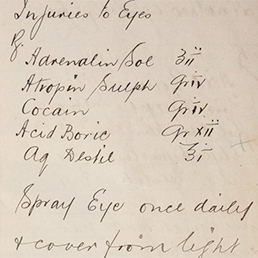 Injuries to Eyes
℞
Adrenalin Sol ʒii
Atropin Sulph Griv
Cocain Griv
Acid Boric Gr xii
Aq Destil ℥i
Spray Eye once daily
& cover from light